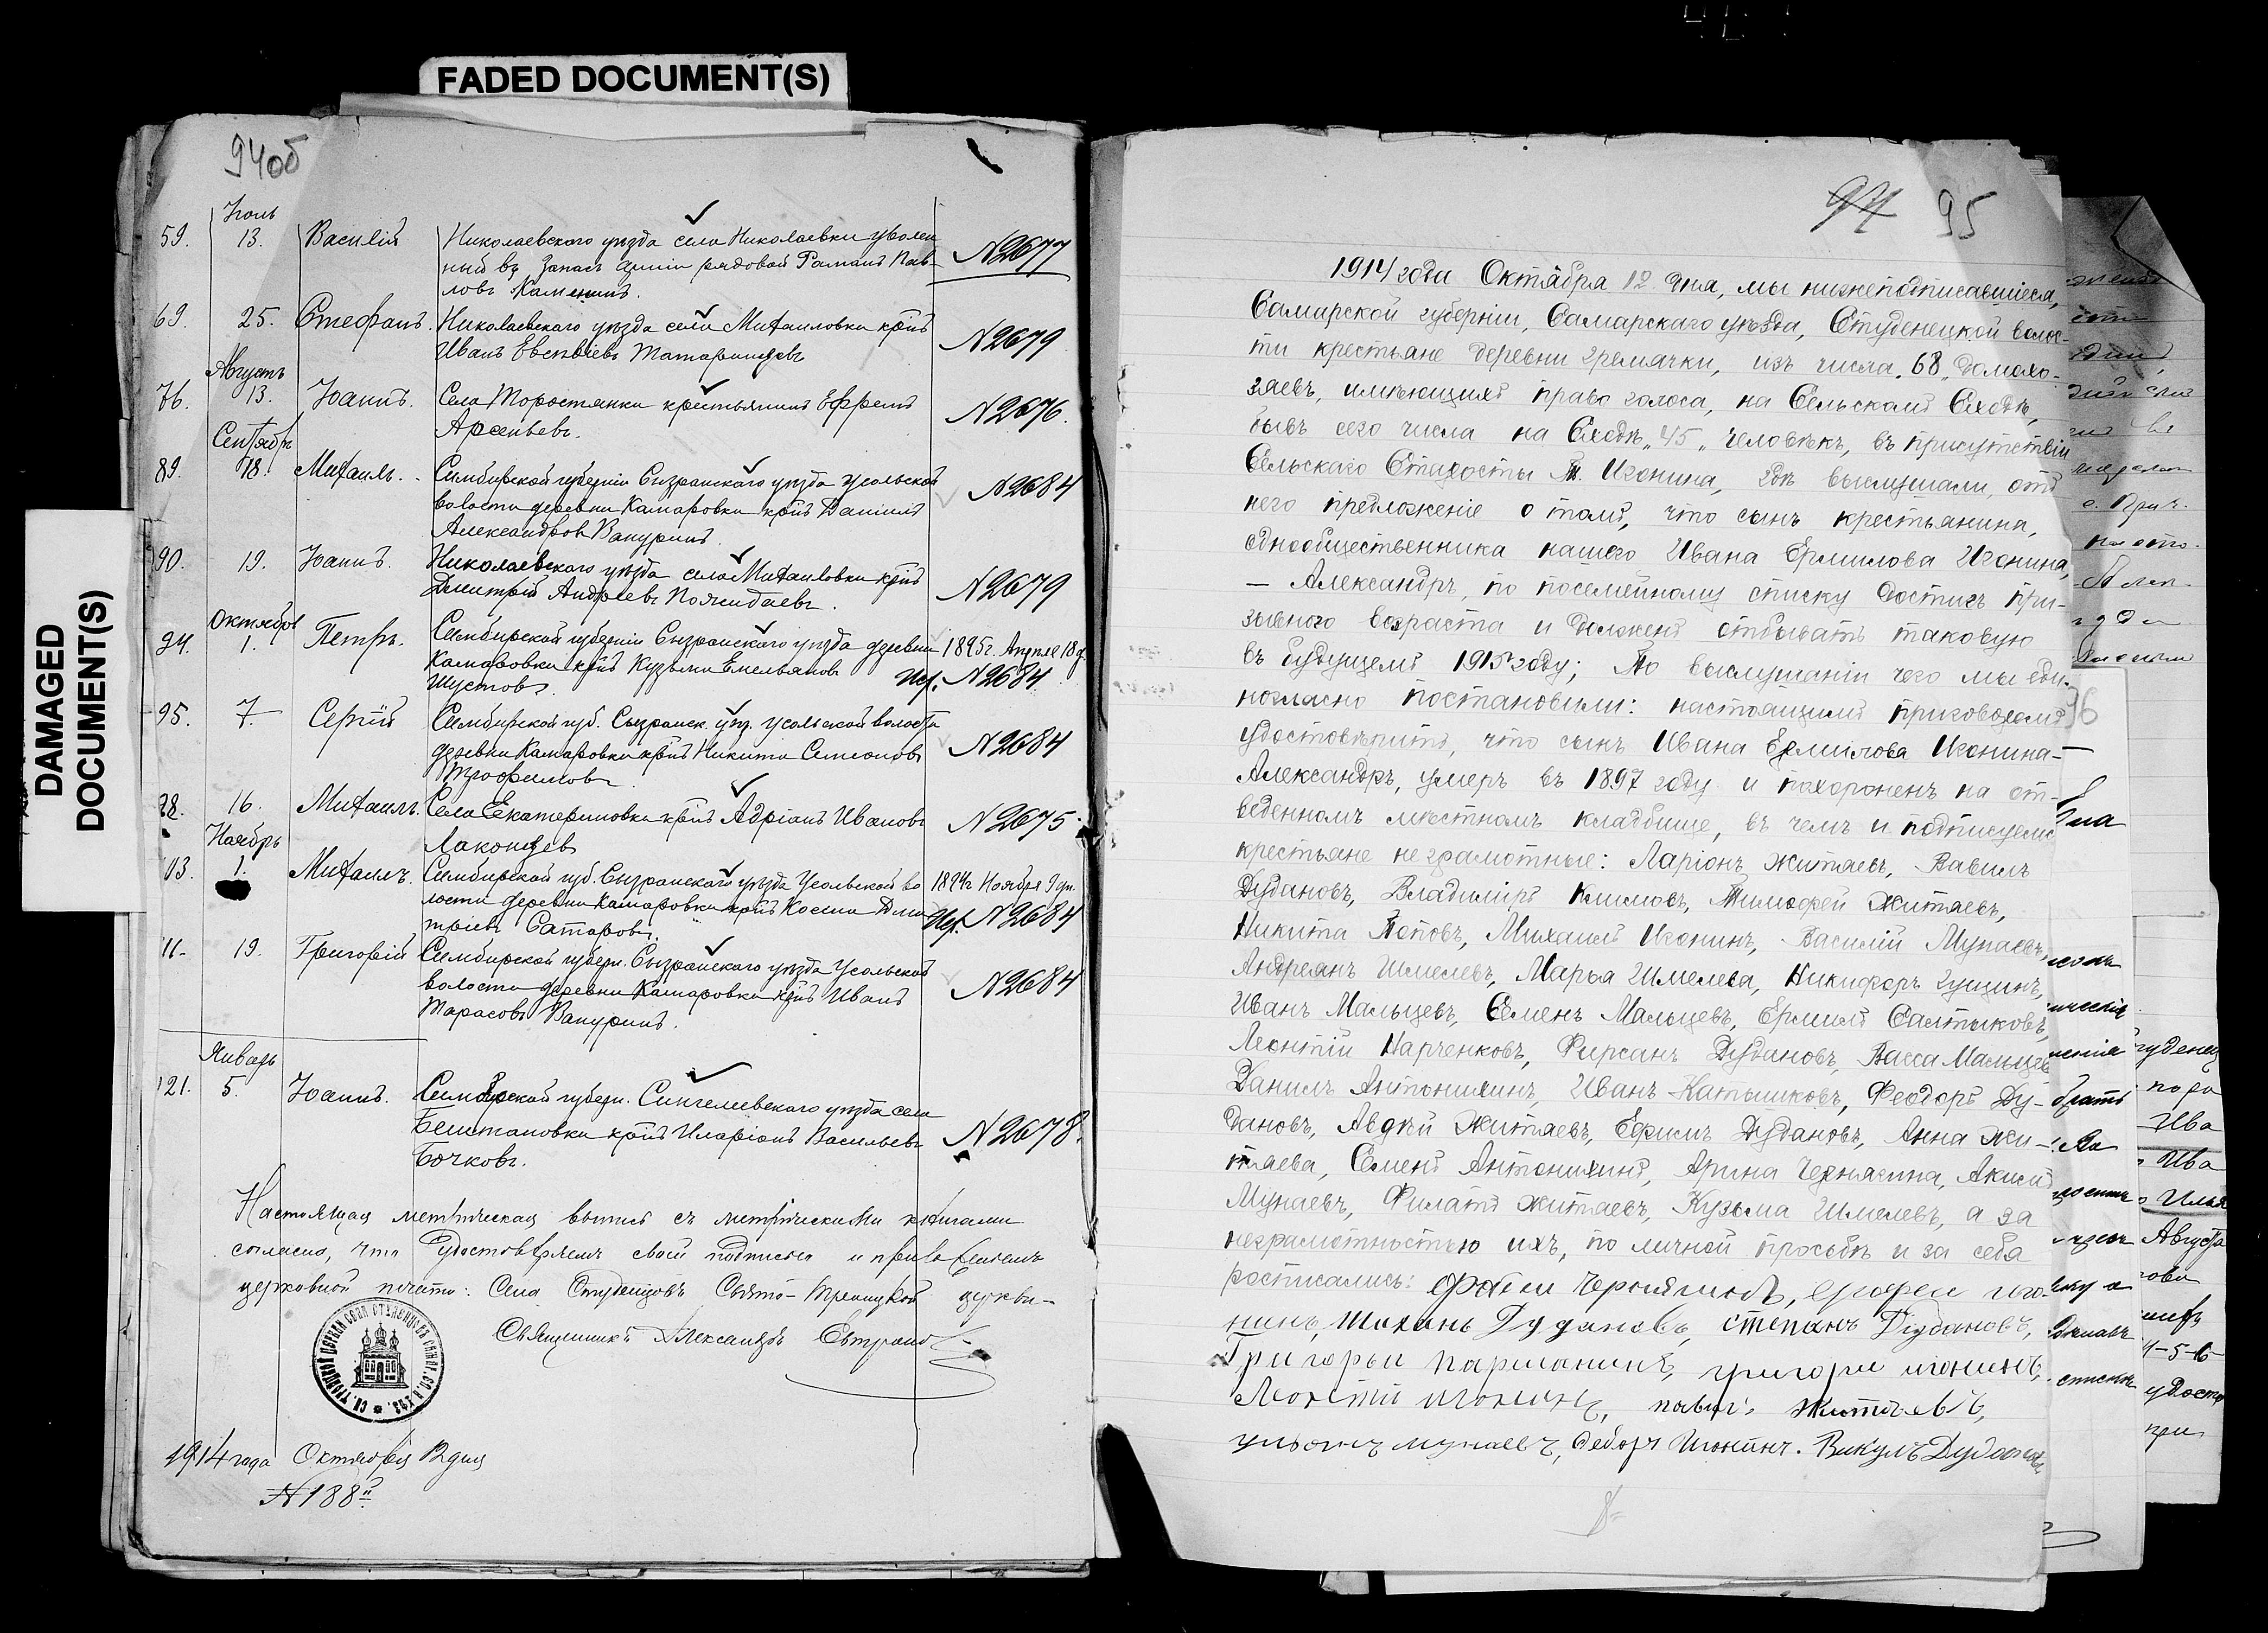 FADED DOCUMENT(S)
DAMAGED
DOCUMENT(S)
94об
Июль
59. 13. Василій Николаевского уѣзда села Николаевки уволен
ный въ запасъ арміи рядовой Романъ Пав-
ловъ Каменевъ. N2677
69. 25. Стефанъ. Николаевскаго уѣзда села Михаиловки крнъ
Иванъ Евсѣвіевъ Татаринцевъ N2679
Августъ
76. 13. Іоаннъ. Села Торостянки крестьянинъ Ефремъ
Арсеньевъ. N2676.
Сентябрь
89. 18. Михаилъ. Симбирской губерніи Сызранскаго уѣзда Усольской
волости деревни Камаровки крнъ Даніилъ
Александровъ Вапуринъ. N2684
90. 19. Іоаннъ. Николаевского уѣзда села Михаиловки крнъ
Дмитрій Андреевъ Пожидаевъ. N2679
Октябрь
94. 1. Петръ. Симбирской губерніи Сызранскаго уѣзда деревни
Камаровки крнъ Кузьма Емельяновъ
Шустовъ. 1895г. Апрѣля 18 д.
N2684
95. 7. Сергій Симбирской губ. Сызранск. уѣз. Усольской волости
деревни Камаровки крнъ Никита Семеновъ
Трофимовъ N2684
98. 16. Михаилъ. Села Екатериновки крнъ Адріанъ Ивановъ
Лаконцевъ N2675
Ноябрь
103. 1. Михаилъ. Симбирской губ. Сызранскаго уѣзда Усольской во
лости деревни Камаровки крнъ Косма Дми
тріевъ Сатаровъ. 1894г Ноября 9 дн.
N2684
111- 19. Григорій Симбирской губерн. Сызранскаго уѣзда Усольской
волости деревни Камаровки крнъ Иванъ
Тарасовъ Вапуринъ. N2684
Январь
121. 5. Іоаннъ. Симбирской губерн. Сингелеевского уѣзда села
Бештановки крнъ Иларіонъ Васильевъ
Бочковъ. N2678.
Настоящая метрическая выпись съ метрическими книгами
согласно, что удостовѣряемъ своей подписью и приложеніемъ
церковной печати: Села Студенцовъ Свято-Троицкой церкви-
Священникъ Александръ
1914 года Октября 12 дня
N188й
94 95
1914 года Октября 12 дня, мы нижеподписавшіеся,
Самарской губерніи, Самарскаго уѣзда, Студенецкой волос-
ти крестьяне деревни Гремячки, изъ числа „68„ домохо-
зяевъ, имѣющихъ право голоса, на Сельскомъ Сходѣ,
бывъ сего числа на Сходѣ „45„ человѣкъ, въ присутствіи
Сельскаго Старосты Т. Игонина, гдѣ выслушали, отъ
него предложеніе о томъ, что сынъ крестьянина,
однообщественника нашего Ивана Ермилова Игонина,
— Александръ, по посемейному списку достигъ при-
зывного возраста и долженъ отбывать таковую
въ будущемъ 1915 году; По выслушаніи чего мы еди-
ногласно постановили: настоящимъ приговоромъ
удостовѣрить, что сынъ Ивана Ермилова Игонина—
Александръ, умеръ въ 1897 году и похороненъ на от-
веденномъ мѣстномъ кладбище, въ чемъ и подписуемся
крестьяне неграмотные: Ларіонъ Житяевъ, Вавилъ
Дудановъ, Владиміръ Климовъ, Тимофей Житаевъ,
Никита Поповъ, Михаилъ Игонинъ, Василій Мунаевъ,
Андреянъ Шмелевъ, Марья Шмелева, Никифоръ Гущинъ,
Иванъ Мальцевъ, Семенъ Мальцевъ, Ермилъ Салтыковъ,
Леонтій Нарченковъ, Фирсанъ Дудановъ, Васса Мальцева
Данилъ Антонихинъ, Иванъ Катышковъ, Феодоръ Ду-
дановъ, Авдѣй Житаевъ, Ефимъ Дудановъ, Анна Жи-
таева, Семенъ Антонихинъ, Арина Чернягина, Акимъ
Мунаевъ, Филатъ Житаевъ, Кузьма Шмелевъ, а за
неграмотностью ихъ, по личной просьбѣ и за себя
росписались: Чернягинъ, иго-
нинъ, Дудановъ, степанъ Дудановъ,
Григорьи паршанинъ, григори игонинъ,
Леонтій игонинъ, Житаевъ,
мунаевъ, Федоръ Игонинъ. Викулъ Дудановъ
96